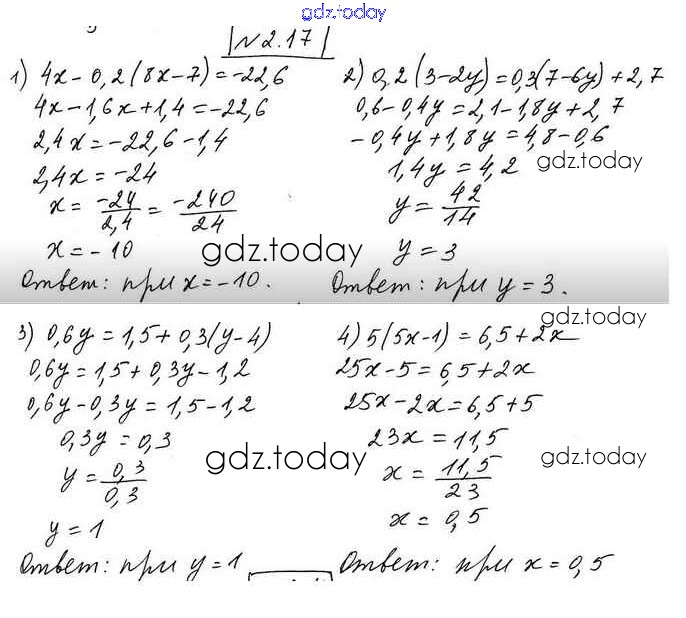 gdz.today
№2.17
1) 4x-0,2(8x-7)=-22,6
4x-1,6x+1,4=-22,6
2,4x=-22,6-1,4
2,4x=-24
x= -24/2,4 = -240/24
x=-10
Ответ: при x=-10.
2) 0,2(3-2y)=0,3(7-6y)+2,7
0,6-0,4y=2,1-1,8y+2,7
-0,4y+1,8y=4,8-0,6
1,4y=4,2
gdz.today
y= 42/14
gdz.today
y=3
Ответ: при y=3.
gdz.today
3) 0,6y=1,5+0,3(y-4)
0,6y=1,5+0,3y-1,2
0,6y-0,3y=1,5-1,2
0,3y=0,3
y= 0,3/0,3
gdz.today
y=1
Ответ: при y=1
4) 5(5x-1)=6,5+2x
25x-5=6,5+2x
25x-2x=6,5+5
23x=11,5
x= 11,5/23
gdz.today
x=0,5
Ответ: при x=0,5